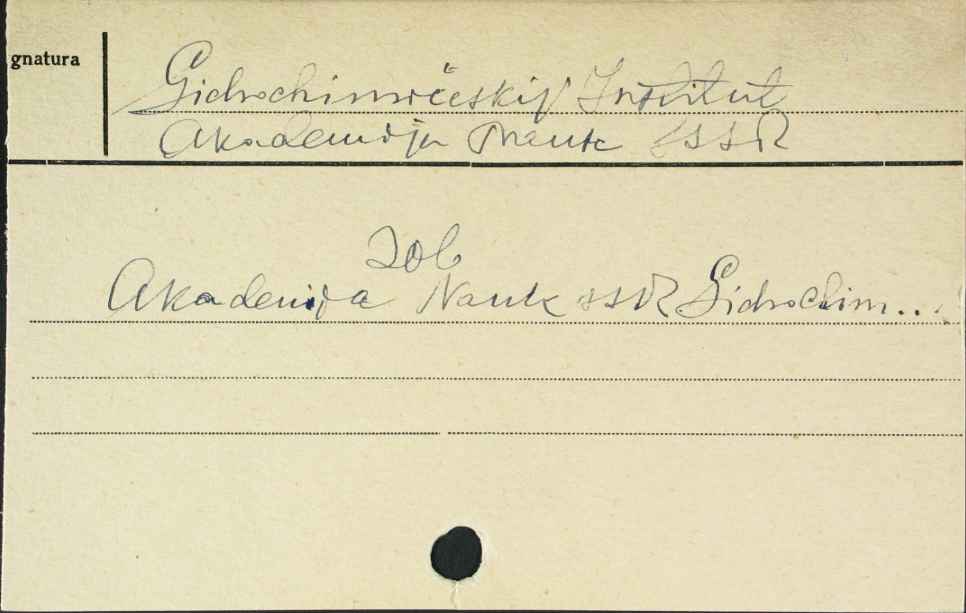 gnatura
Gidrochimičeskij Institut
Akademija Nauk SSSR
Zob
Akademija Nauk SSSR Gidrochim...